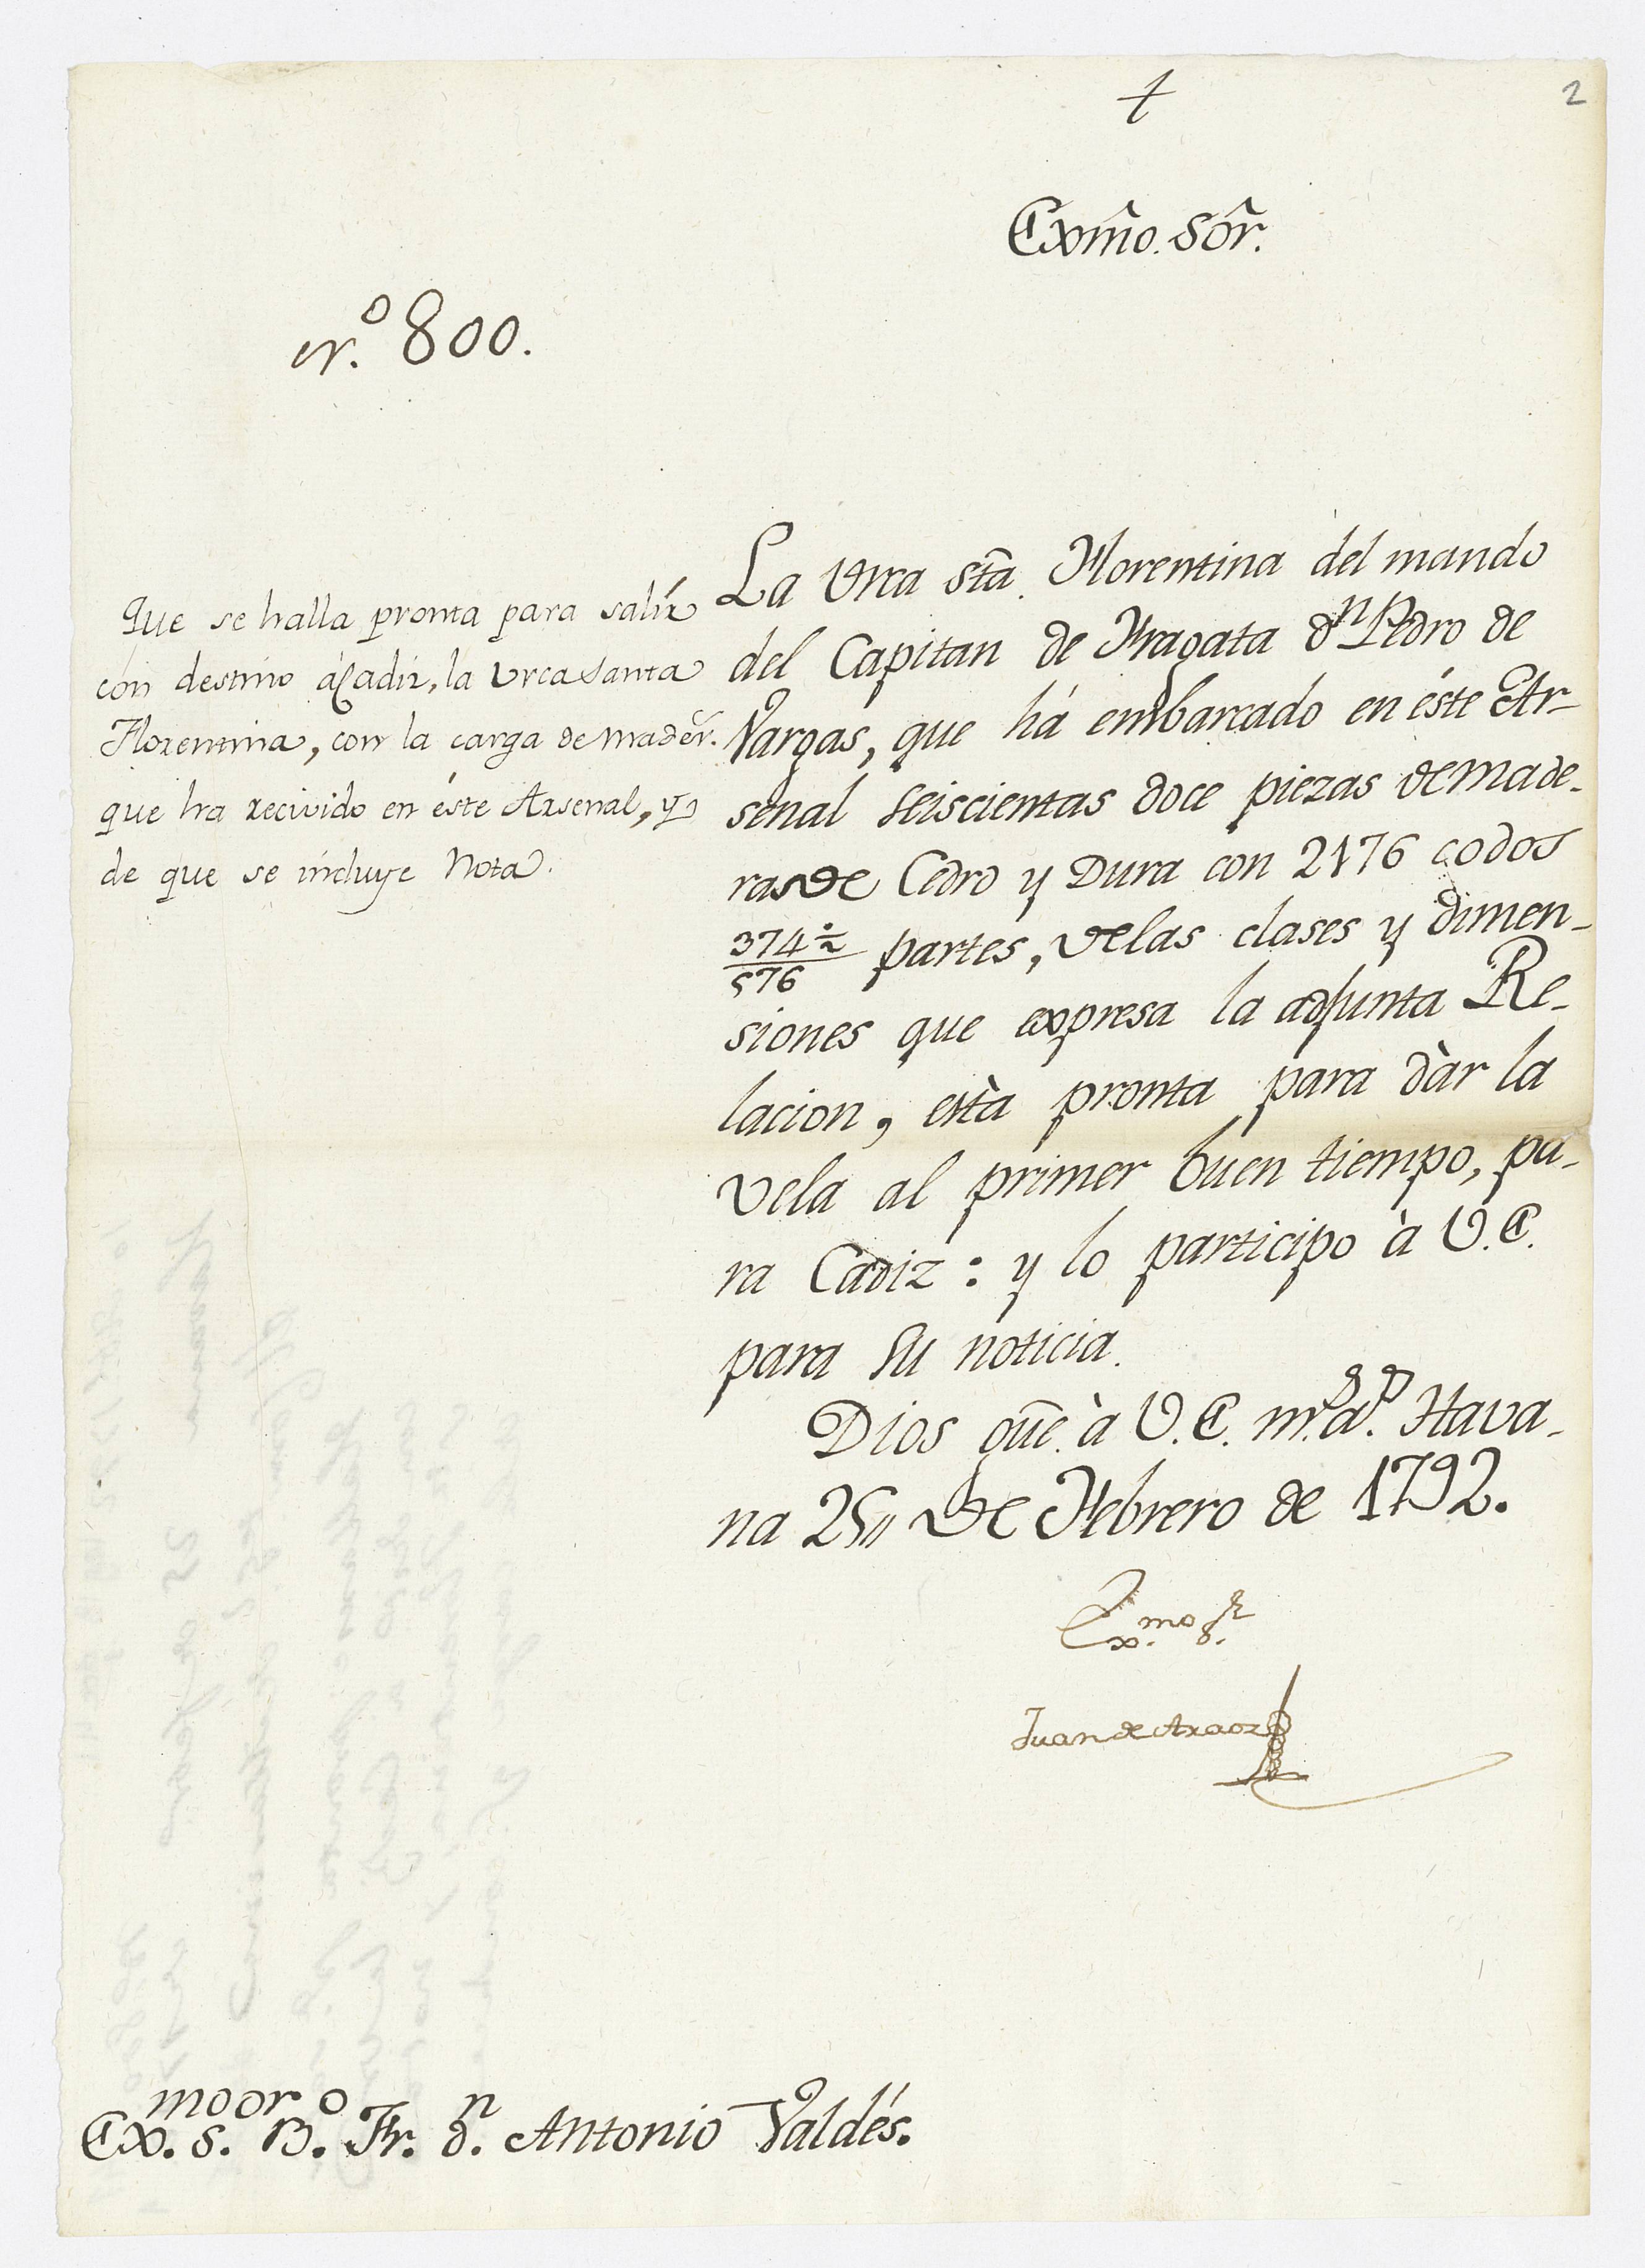 2
Exmõ. Sõr.
n.º 800.
Que se halla pronta para salír
con destino á Cadiz, la Urca Santa
Florentina, con la carga de mader.s
que ha recivido en éste Arsenal, y
de que se incluye Nota.
La Urca Stã. Florentina del mando
del Capitan de Fragata dn Pedro de
Vargas, que há embarcado en éste Ar-
senal seiscientas doce piezas de made-
ras de Cedro y Dura con 2176 codos
374½/576 partes, de las clases y dimen-
siones que expresa la adjunta Re-
lacion, està pronta para dàr la
vela al primer buen tiempo, pa-
ra Cadiz: y lo participo à V.E.
para su noticia.
Dios güe. à V.E. ms. as. Hava-
na 25,, de Febrero de 1792.
Exmo. Sr.
Juan de Araoz
Exmo. Sor. Bo. Fr. dn. Antonio Valdés.